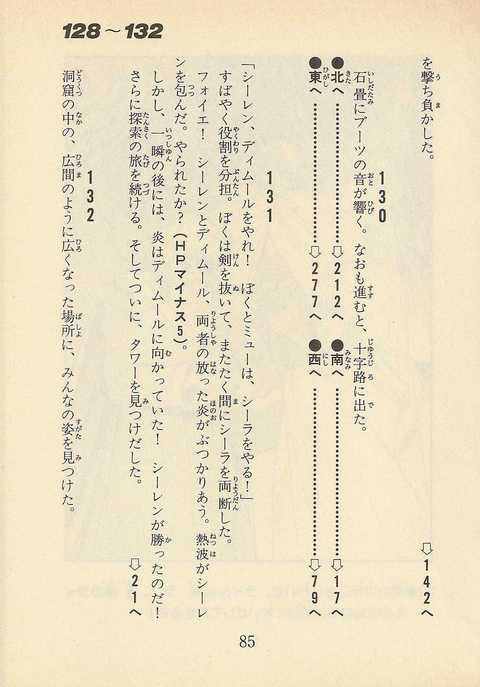 128～132
を撃ち負かした。
⇩142へ
130
石畳にブーツの音が響く。なおも進むと、十字路に出た。
●北へ⇩212へ ●南へ⇩17へ
●東へ⇩277へ ●西へ⇩79へ
131
「シーレン、ディムールをやれ！　ぼくとミューは、シーラをやる！」
すばやく役割を分担。ぼくは剣を抜いて、またたく間にシーラを両断した。
フォイエ！　シーレンとディムール、両者の放った炎がぶつかりあう。熱波がシーレ
ンを包んだ。やられたか？（ＨＰマイナス5）。
しかし、一瞬の後には、炎はディムールに向かっていた！　シーレンが勝ったのだ！
さらに探索の旅を続ける。そしてついに、タワーを見つけだした。
⇩21へ
132
洞窟の中の、広間のように広くなった場所に、みんなの姿を見つけた。
85